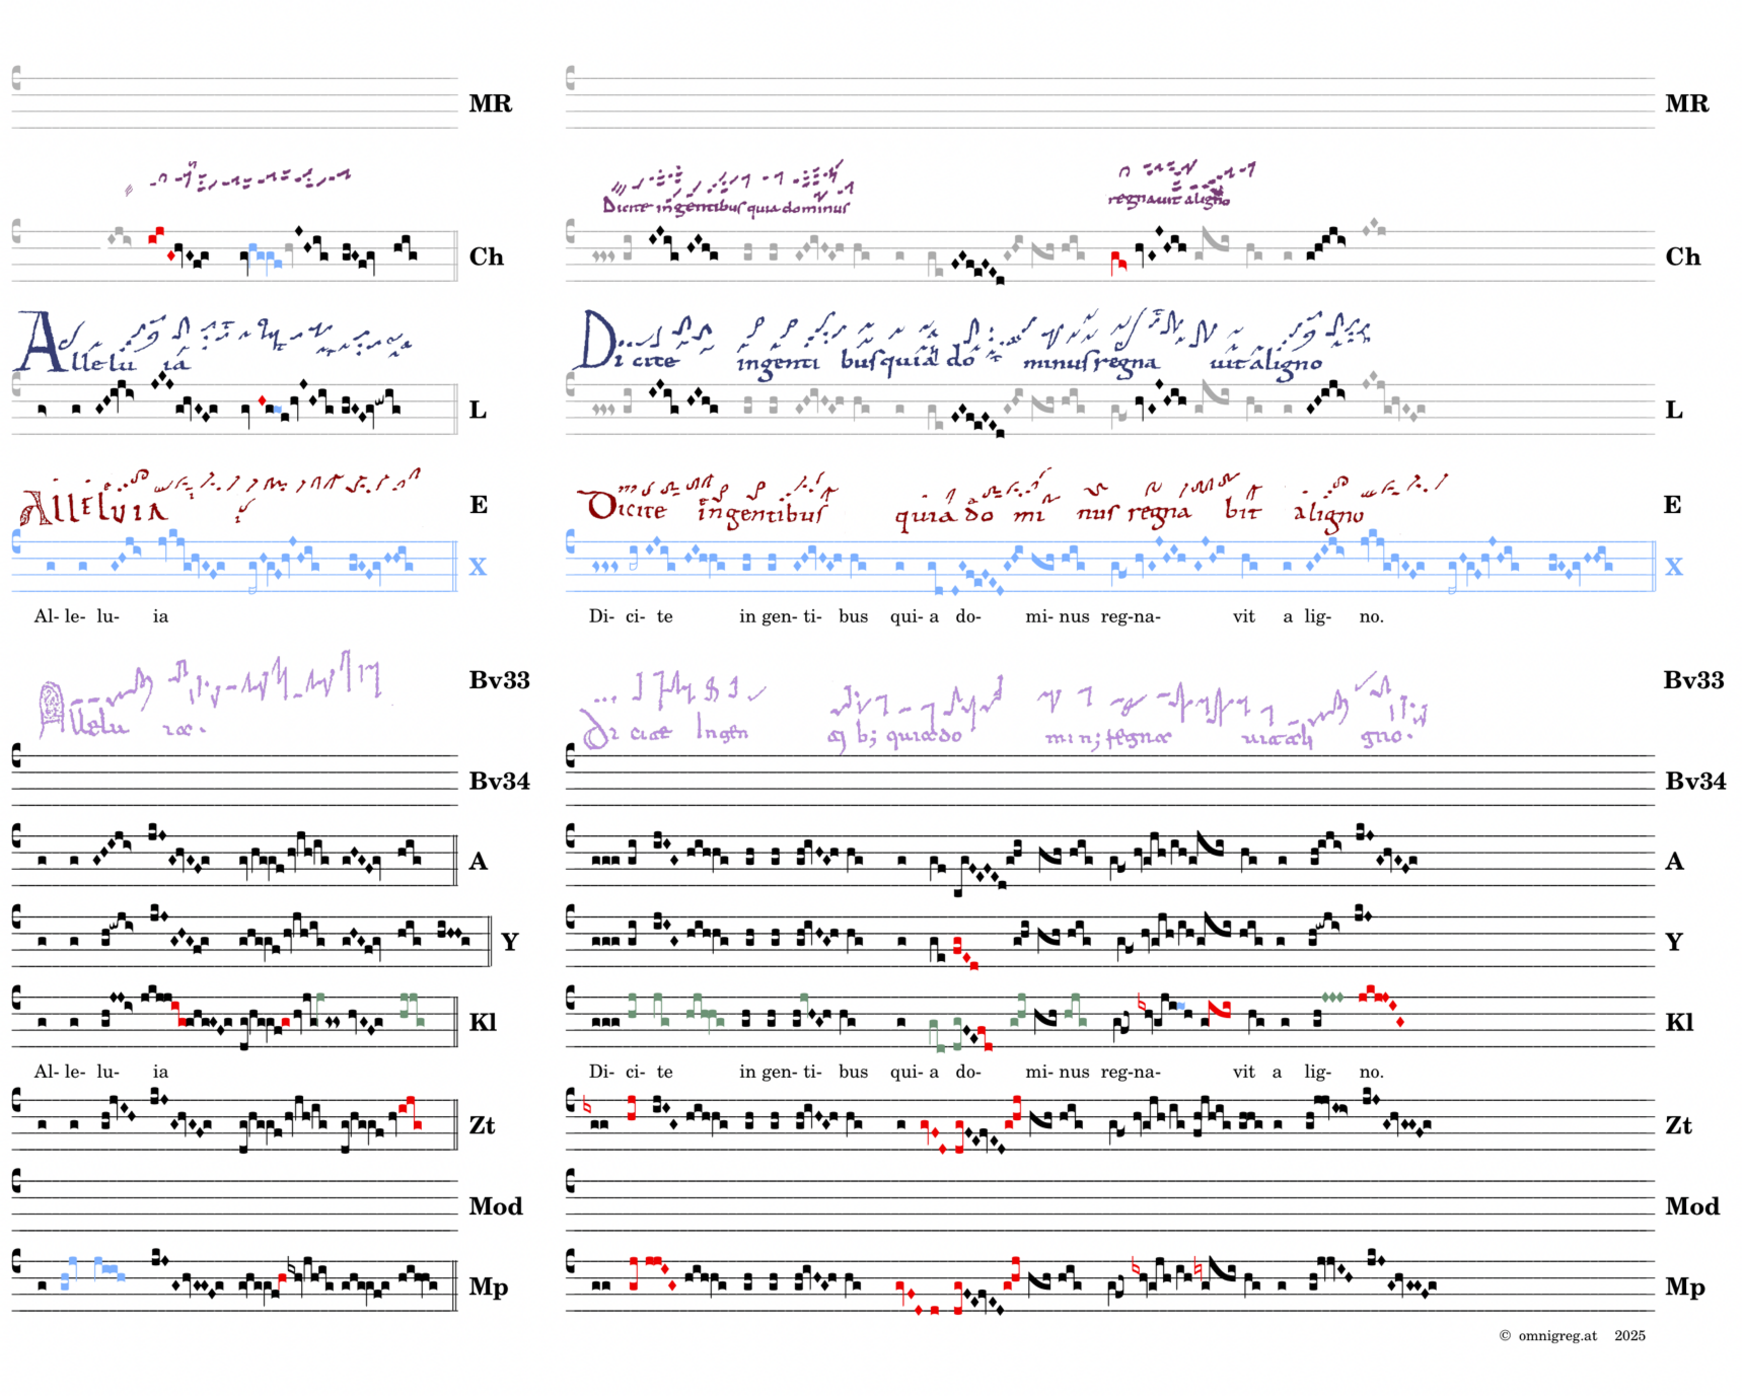 MR MR
Dicite in gentibus quia dominus regnavit a ligno
Ch Ch
Allelu ia Dicite in genti bus quia do minus regna vit a ligno
L L
Alleluia Dicite in gentibus quia do mi nus regna bit a ligno
E E
X X
Al- le- lu- ia Di- ci- te in gen- ti- bus qui- a do- mi- nus reg-na- vit a lig- no.
Bv33 Bv33
Allelu
Bv34 Bv34
A A
Y Y
Kl Kl
Al- le- lu- ia Di- ci- te in gen- ti- bus qui- a do- mi- nus reg-na- vit a lig- no.
Zt Zt
Mod Mod
Mp Mp
© omnigreg.at 2025